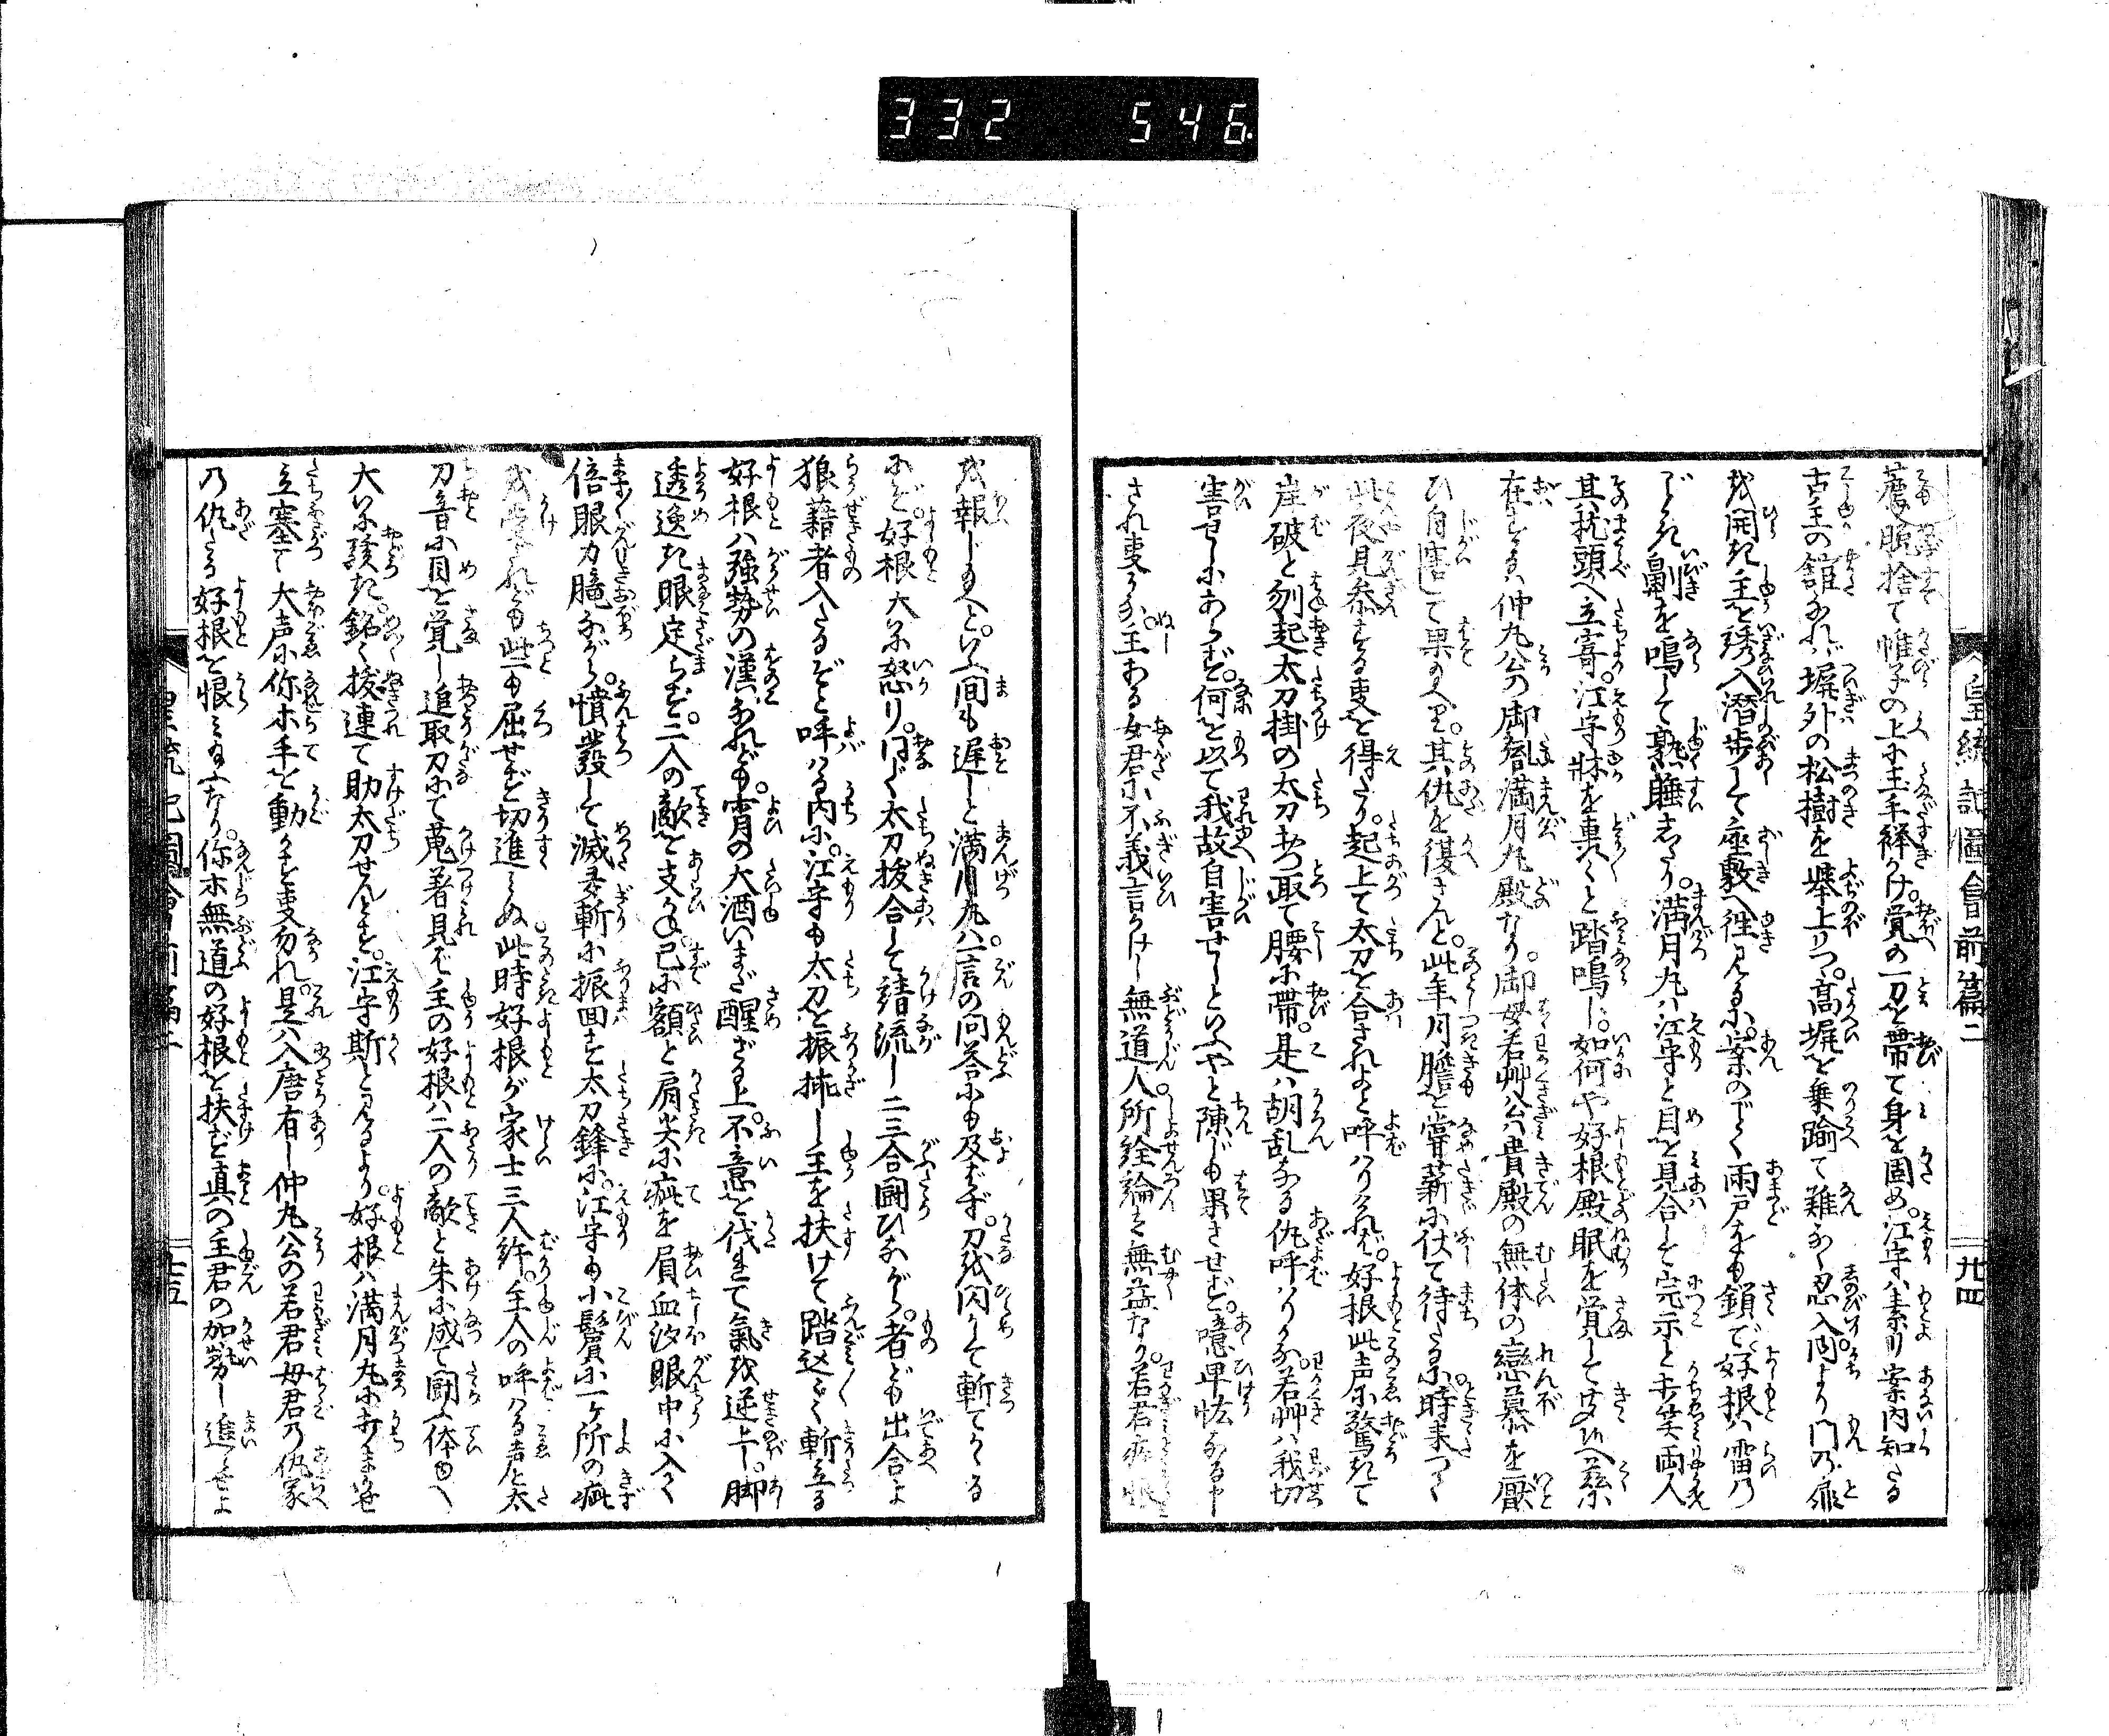 332 546
皇統記圖會前篇二 廿四
蓑脱捨て帷子の上に玉手襷かけ。覚の一刀を帯て身を固め。江守は素り案内知たる
古主の舘なれば塀外の松樹を攀上りつゝ。高塀を乗踰て難なく忍入。内より門の扉
を開き主を誘入潜歩して座敷へ往見るに。案のごとく雨戸をも鎖で好根は雷の
ごとき鼾を鳴して熟睡したり。満月丸は江守と目を見合して完示と打笑両人
其枕頭へ立寄。江守牀を轟々と踏鳴し。如何や好根殿眠を覚して聞候へ茲に
在すは仲丸公の御落胤満月丸殿なり。御母若艸公は貴殿の無体の戀慕を厭
ひ自害して果のへり。其仇を復さんと。此年月膽を甞薪に伏て待たるに時来つて
此夜見参する事を得たり。起上て太刀を合されよと呼はりければ。好根此声に驚きて
岸破と刎起太刀掛の太刀おつ取て腰に帯。是は胡乱なる仇呼はりかな若艸は我切
害せしにあらず。何を以て我故自害せしといふやと陳じも果させず。噫卑怯なるや
されまうかな。主ある女君に不義言かけし無道人所詮論は無益なり若君疾恨
を報じのへと。いふ間も遅しと満月丸は一言の問答にも及ばず。刀を閃かして斬てかゝる
にぞ。好根大に怒り。同じく太刀抜合して請流し二三合闘ひながら。者ども出合よ
狼藉者入たるぞと呼はる内に。江守も太刀を振抔し主を扶けて踏込々々斬立る
好根は強勢の漢なれども。宵の大酒いまだ醒ざる上。不意を伐れて氣を逆上し。脚
透逸き眼定らず。二人の敵を支かね。已に額と肩尖に疵を肩血汐眼中に入て
倍眼力朧ながら。憤發して滅多斬に振回す太刀鋒に。江守も小鬢に一ケ所の疵
を蒙れども些も屈せず切進みぬ此時好根が家士三人許。主人の呼はる声と太
刀音に目を覚し追取刀にて蒐着見ば主の好根は二人の敵と朱に成て闘ふ体ゆへ
大に駭き。銘々抜連て助太刀せんとす。江守斯と見るより。好根は満月丸に打まかせ
立塞て大声に你ホ手を動かす事勿れ。是は入唐有し仲丸公の若君母君の仇家
の仇たる好根を恨みのふなり。你ホ無道の好根を扶ず真の主君の加勢し進せよ
皇統記圖會前篇二 廿五